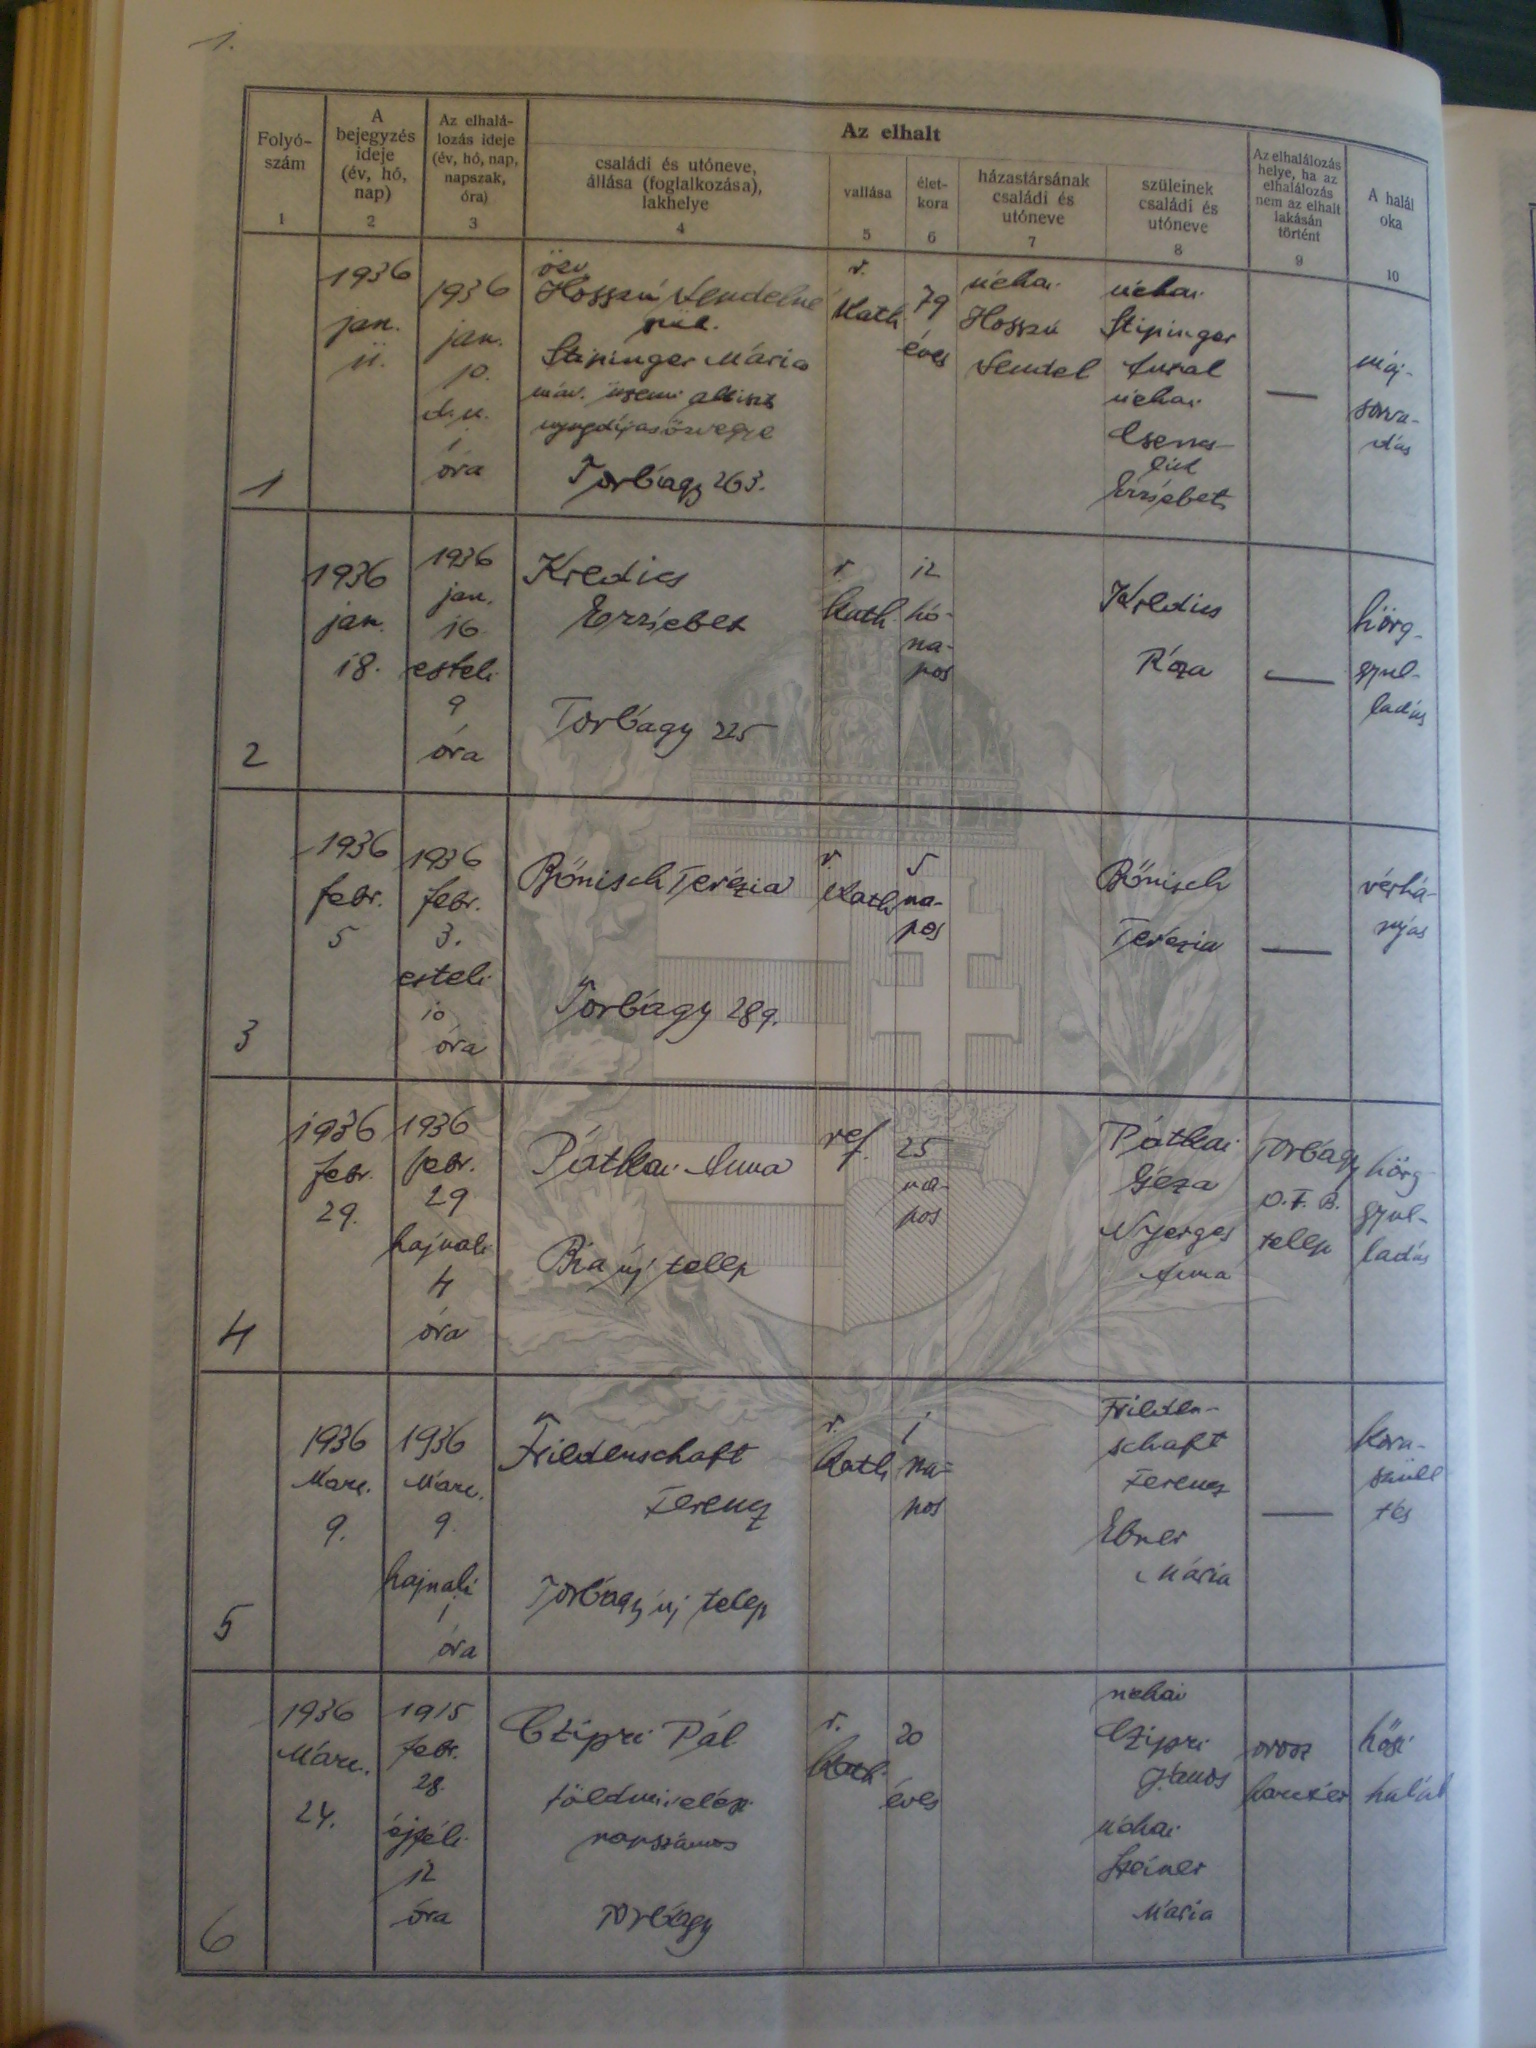 1.
Folyó-
szám
1
A
bejegyzés
ideje
(év, hó,
nap)
2
Az elhalá-
lozás ideje
(év, hó, nap,
napszak,
óra)
3
Az elhalt
családi és utóneve,
állása (foglalkozása),
lakhelye
4
vallása
5
élet-
kora
6
házastársának
családi és
utóneve
7
szüleinek
családi és
utóneve
8
Az elhalálozás
helye, ha az
elhalálozás
nem az elhalt
lakásán
történt
9
A halál
oka
10
1
1936
jan.
11.
1936
jan.
10.
d.u.
1
óra
özv.
Hosszú Vendelné
szül.
Stipinger Mária
máv. üzemi altiszt
nyugdíjas özvegye
Torbágy 263.
r.
kath.
79
éves
néhai
Hosszú
Vendel
néhai
Stipinger
Antal
néhai
Erzsébet
—
máj-
sorva-
dás
2
1936
jan.
18.
1936
jan.
16
esteli
9
óra
Kredics
Erzsébet
Torbágy 225
r.
kath.
12
hó-
na-
pos
Kredics
Róza
—
hörg-
gyul-
ladás
3
1936
febr.
5
1936
febr.
3.
esteli
10
óra
Bőnisch Terézia
Torbágy 289.
r.
kath.
5
na-
pos
Bőnisch
Terézia
—
vérhá-
nyás
4
1936
febr.
29.
1936
febr.
29
hajnali
4
óra
Pátkai Anna
Bia új telep
ref.
25
na-
pos
Pátkai
Géza
Nyerges
Anna
Torbágy
O.F.B.
telep
hörg
gyul-
ladás
5
1936
Márc.
9.
1936
Márc.
9.
hajnali
1
óra
Friedenschaft
Ferencz
Torbágy új telep
r.
kath.
1
na=
pos
Frieden-
schaft
Ferencz
Ebner
Mária
—
kora-
szüle
tés
6
1936
Márc.
24.
1915
febr.
28.
éjféli
12
óra
Czipri Pál
földmívelési
napszámos
Torbágy
r.
kath.
20
éves
néhai
Czipri
János
néhai
Steiner
Mária
orosz
harctér
hősi
halál